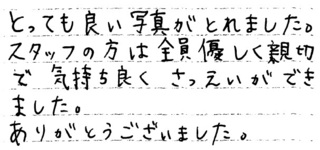 とっても良い写真がとれました。
スタッフの方は全員優しく親切
で 気持ち良く さつえいができ
ました。
ありがとうございました。